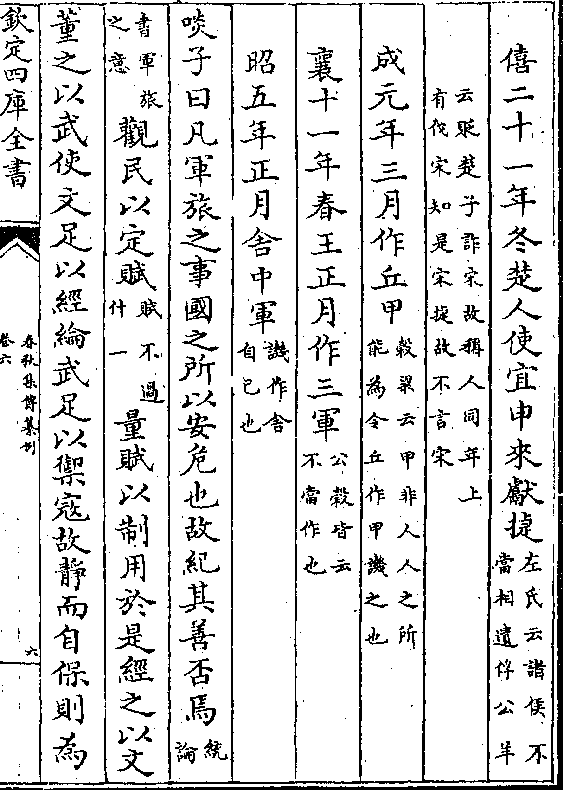 僖二十一年冬楚人使宜申來獻捷左氏云諸侯不當相遺俘公羊
云貶楚子詐宋故稱人同年上有伐宋知是宋捷故不言宋
成元年三月作丘甲穀梁云甲非人人之所能為令丘作甲譏之也
襄十一年春王正月作三軍公穀皆云不當作也
昭五年正月舍中軍譏作舍自已也
啖子曰凡軍旅之事國之所以安危也故紀其善否焉統論
書軍旅之意觀民以定賦賦不過什一量賦以制用於是經之以文
董之以武使文足以經綸武足以禦寇故靜而自保則為
欽定四庫全書
春秋集傳纂例
卷六
六